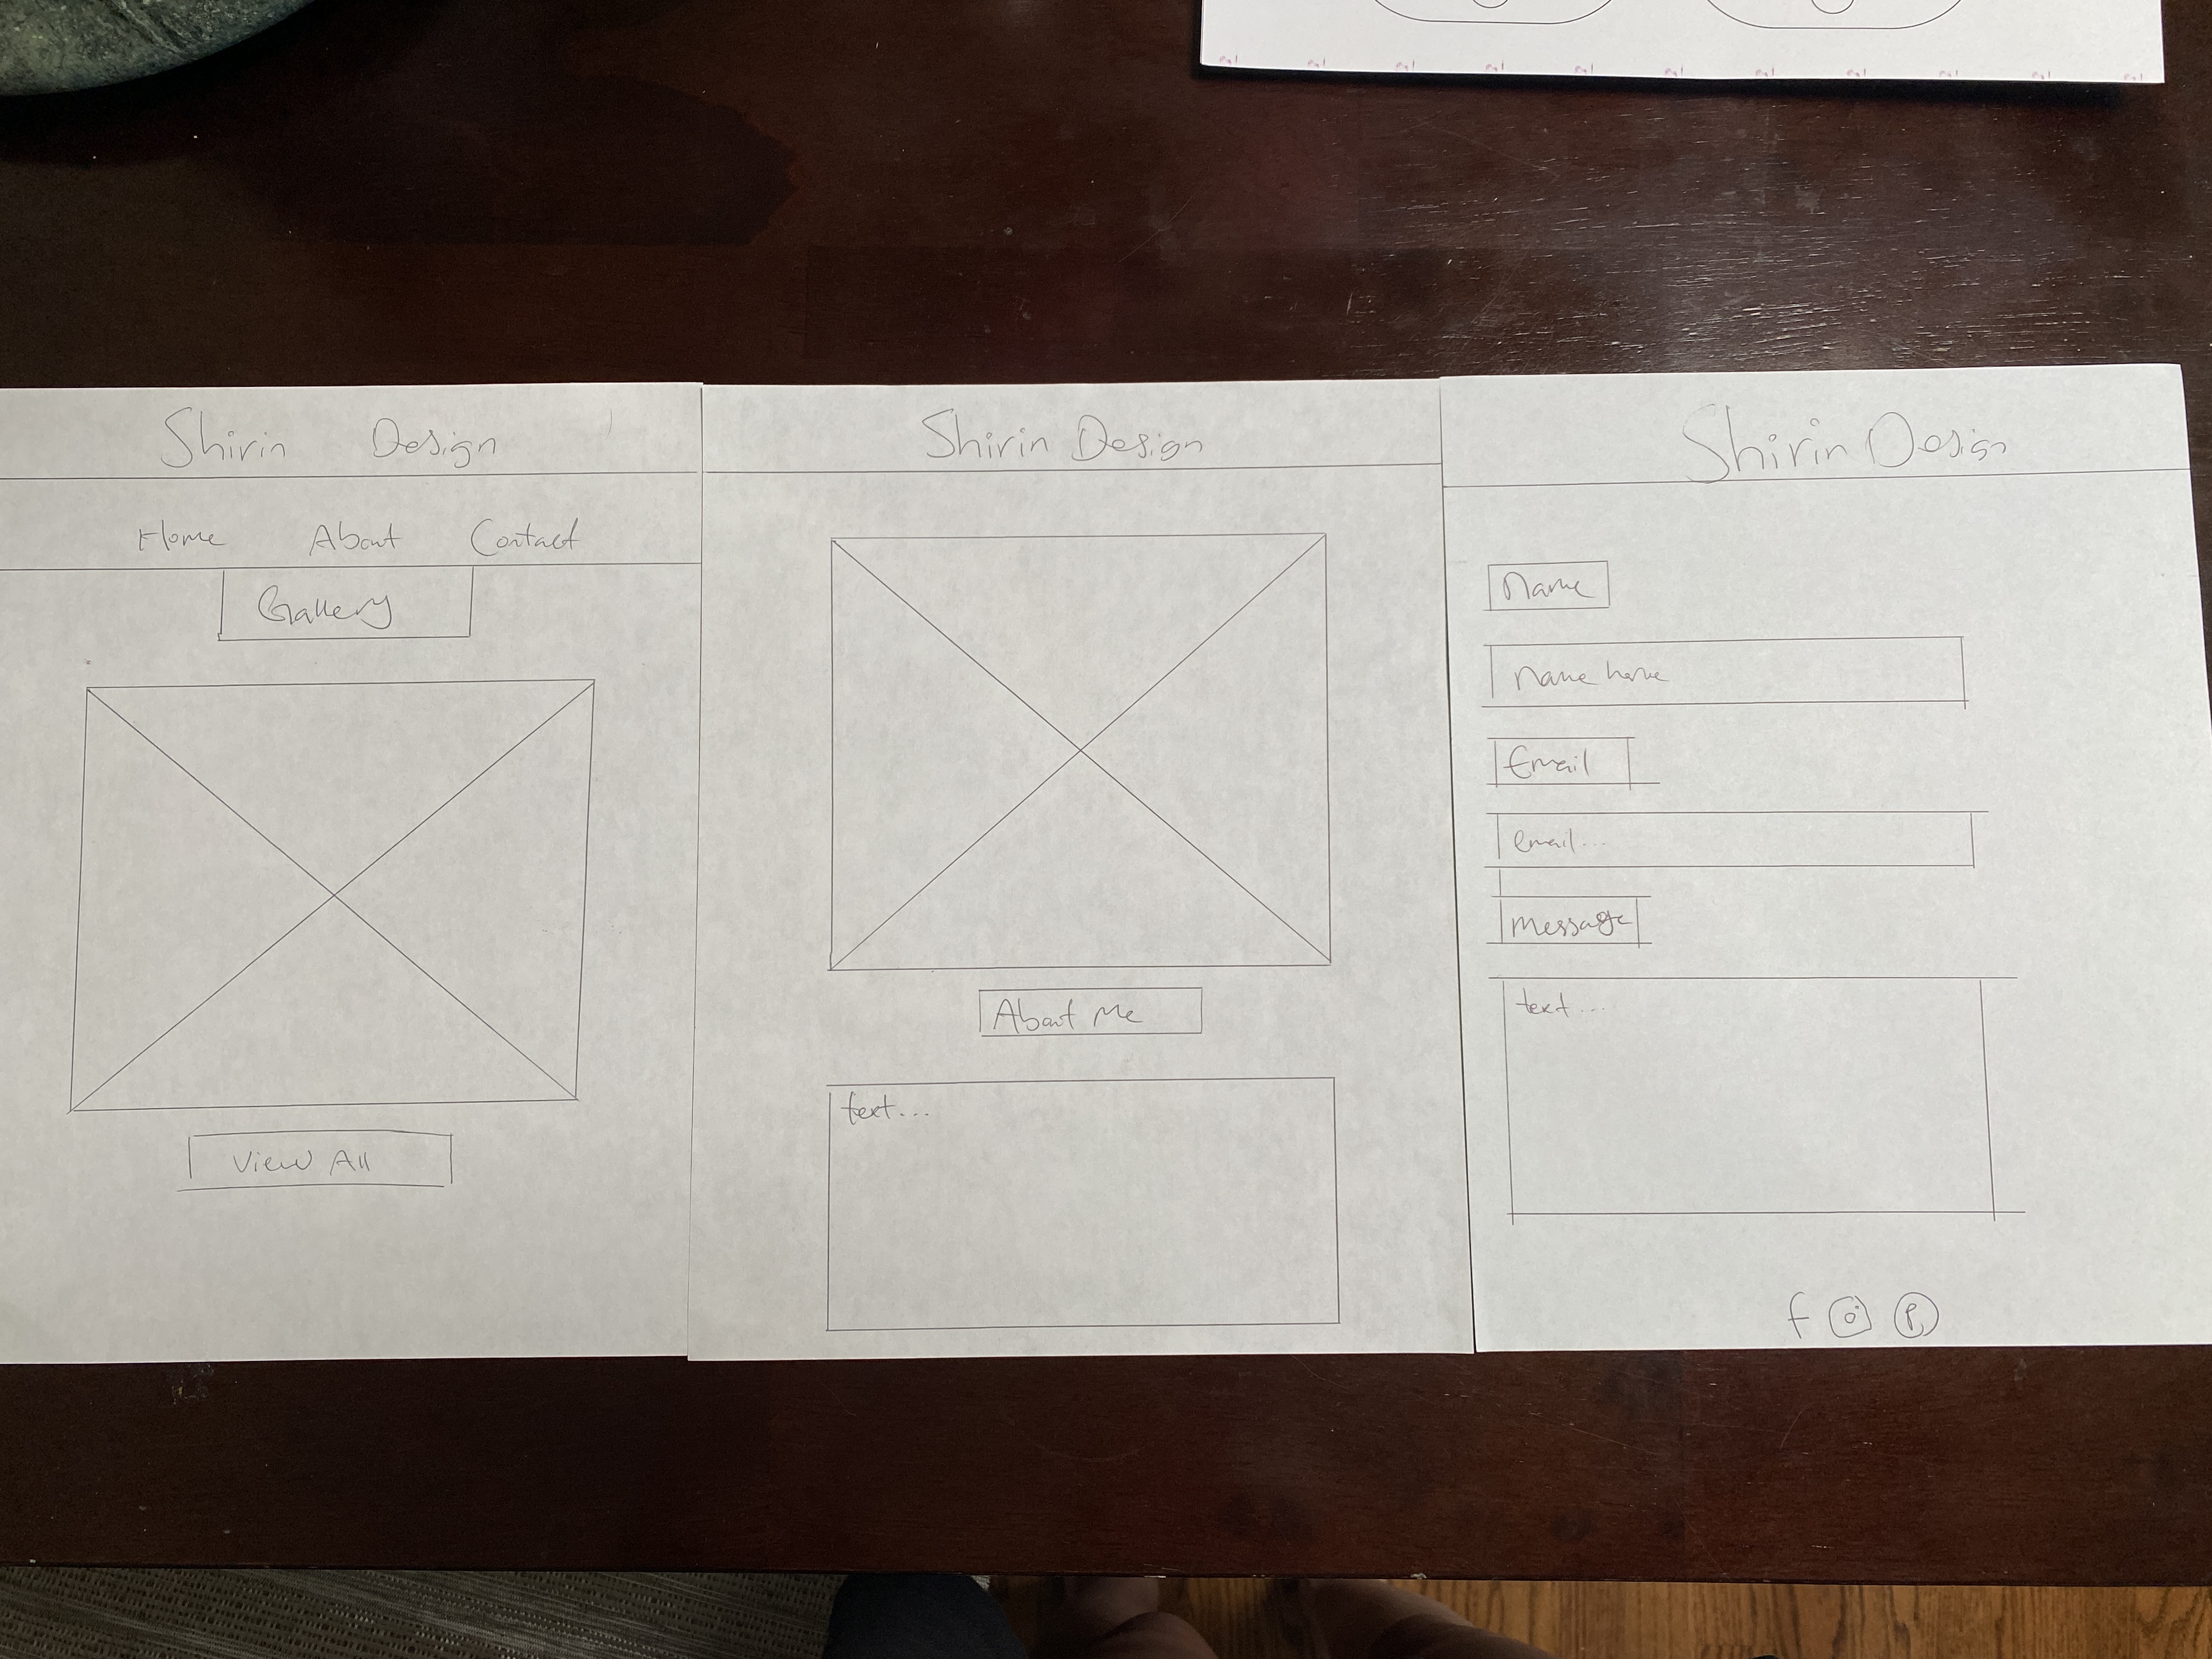 Shirin Design
Home About Contact
Gallery
View All
Shirin Design
About Me
text...
Shirin Design
Name
Name here
Email
email....
Message
text....
f
P